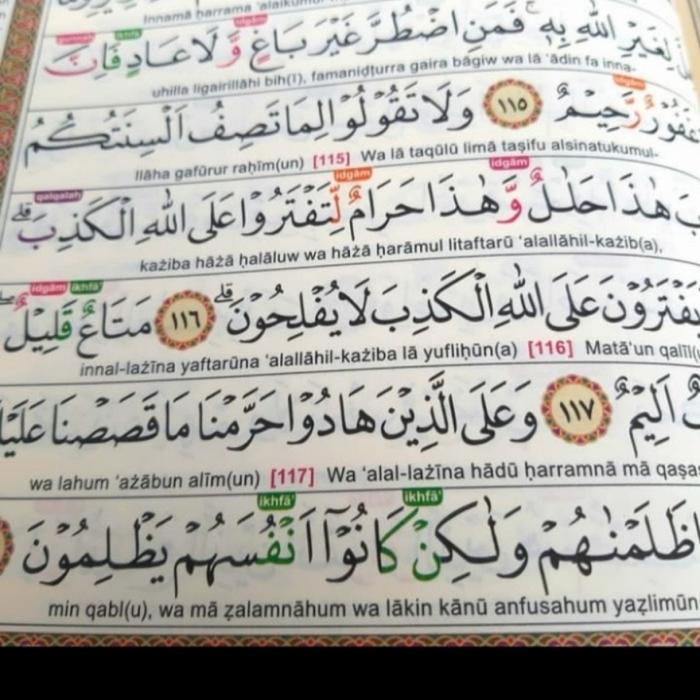 Innamā ḥarrama 'alaikumul
لِغَيْرِ اللّٰهِ بِهٖۚ فَمَنِ اضْطُرَّ غَيْرَ بَاغٍ وَّلَا عَادٍ فَاِنَّ
uhilla ligairillāhi bih(ī), famaniḍṭurra gaira bāgiw wa lā 'ādin fa inna-
غَفُوْرٌ رَّحِيْمٌ ١١٥ وَلَا تَقُوْلُوْا لِمَا تَصِفُ اَلْسِنَتُكُمُ
llāha gafūrur raḥīm(un) [115] Wa lā taqūlū limā taṣifu alsinatukumul-
هٰذَا حَلٰلٌ وَّهٰذَا حَرَامٌ لِّتَفْتَرُوْا عَلَى اللّٰهِ الْكَذِبَۗ
każiba hāżā ḥalāluw wa hāżā ḥarāmul litaftarū 'alallāhil-każib(a),
يَفْتَرُوْنَ عَلَى اللّٰهِ الْكَذِبَ لَا يُفْلِحُوْنَۗ ١١٦ مَتَاعٌ قَلِيْلٌۖ
innal-lażīna yaftarūna 'alallāhil-każiba lā yufliḥūn(a) [116] Matā'un qalīl(u
اَلِيْمٌ ١١٧ وَعَلَى الَّذِيْنَ هَادُوْا حَرَّمْنَا مَا قَصَصْنَا عَلَيْ
wa lahum 'ażābun alīm(un) [117] Wa 'alal-lażīna hādū ḥarramnā mā qaṣa
ظَلَمْنٰهُمْ وَلٰكِنْ كَانُوْٓا اَنْفُسَهُمْ يَظْلِمُوْنَ
min qabl(u), wa mā ẓalamnāhum wa lākin kānū anfusahum yaẓlimūn